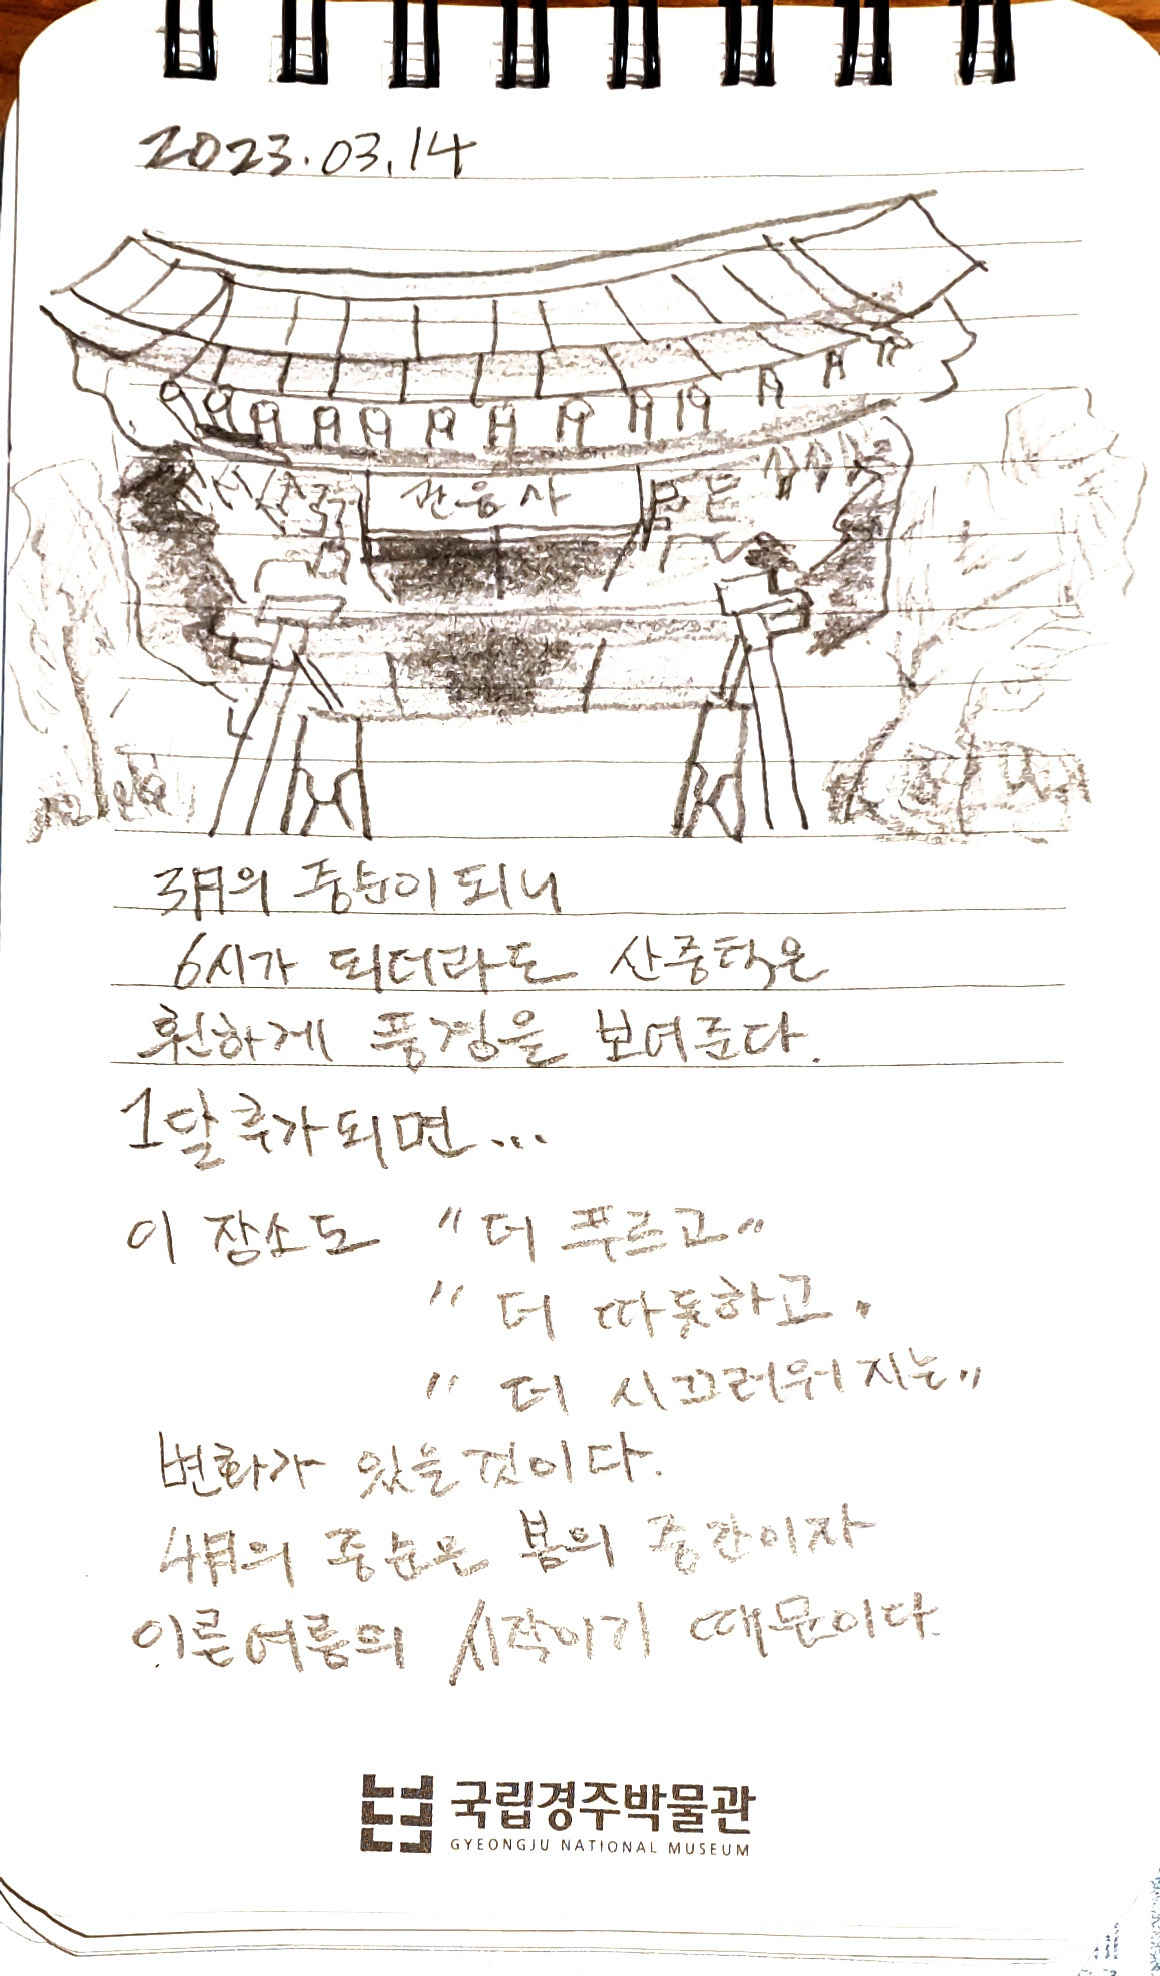 2023.03.14
관음사
3月의 중순이 되니
6시가 되더라도 산중턱은
훤하게 풍경을 보여준다.
1달 후가 되면...
이 장소도 "더 푸르고"
" 더 따듯하고"
" 더 시끄러워지는"
변화가 있을 것이다.
4月의 중순은 봄의 중간이자
이른 여름의 시작이기 때문이다.
국립경주박물관
GYEONGJU NATIONAL MUSEUM